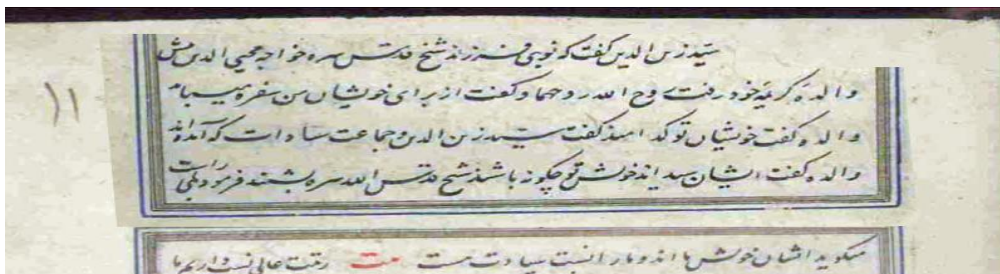 سید زین الدین گفت که نوبتی فرزند شیخ قدس سره خواجه محیی الدین پیش
والدهٔ کریمهٔ خود رفت روح الله روحهما و گفت از برای خویشان من سفره میباید
والده گفت خویشان تو کدامند گفت سید زین الدین و جماعت سادات که آمده‌اند
والده گفت ایشان سید اند خویش تو چگونه باشند شیخ قدس الله سره بشنید فرمود
میگوید ایشان خویش ما اند و ما را نسبت سیادت هست بیت عالی نسب
۱۱